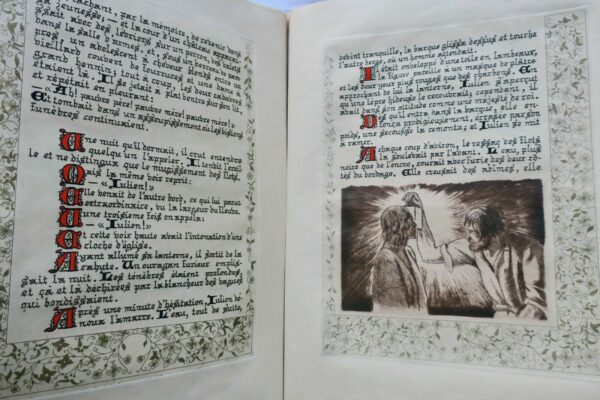 tâchant, par la mémoire, de revenir dans
sa jeunesse, — et la cour d'un château
avec des lévriers sur un perron, des valets
dans la salle d'armes, et, sous un berceau de
pres, un adolescent à cheveux blonds entre un
vieillard couvert de fourrures et une dame à
grand hennin; tout à coup, les deux cadavres
étaient là. Il se jetait à plat ventre sur son lit,
et répétait en pleurant:
— « Ah! pauvre père! pauvre mère! pauvre mère! »
Et tombait dans un assoupissement où les visions
funèbres continuaient.
Une nuit qu'il dormait, il crut entendre
quelqu'un l'appeler. Il tendit l'oreil-
le et ne distingua que le mugissement des flots.
Mais la même voix reprit:
— « Julien! »
Elle venait de l'autre bord, ce qui lui parut
extraordinaire, vu la largeur du fleuve.
Une troisième fois on appela:
— « Julien! »
Et cette voix haute avait l'intonation d'une
cloche d'église.
Ayant allumé sa lanterne, il sortit de la
cahute. Un ouragan furieux emplis-
sait la nuit. Les ténèbres étaient profondes,
et çà et là déchirées par la blancheur des vagues
qui bondissaient.
Après une minute d'hésitation, Julien dé-
noua l'amarre. L'eau, tout de suite,
devint tranquille, la barque glissa dessus et toucha
l'autre berge, où un homme attendait.
Il était enveloppé d'une toile en lambeaux,
la figure pareille à un masque de plâtre
et les deux yeux plus rouges que des charbons. En
approchant de lui la lanterne, Julien s'aperçut
qu'une lèpre hideuse le recouvrait; cependant, il
avait dans son attitude comme une majesté de roi.
Dès qu'il entra dans la barque, elle en-
fonça prodigieusement, écrasée par son
poids; une secousse la remonta; et Julien se mit
à ramer.
A chaque coup d'aviron, le ressac des flots
la soulevait par l'avant. L'eau, plus
noire que de l'encre, courait avec furie des deux cô-
tés du bordage. Elle creusait des abîmes, elle